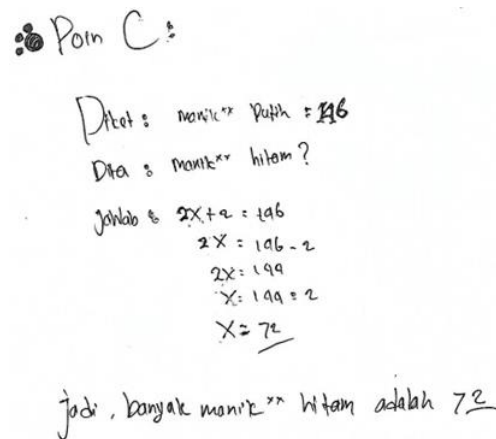 Poin C :
Diket : manik" putih = 146
Dita : manik" hitam ?
Jawab : 2x + 2 = 146
2x = 146 - 2
2x = 144
x = 144 : 2
x = 72
Jadi, banyak manik" hitam adalah 72